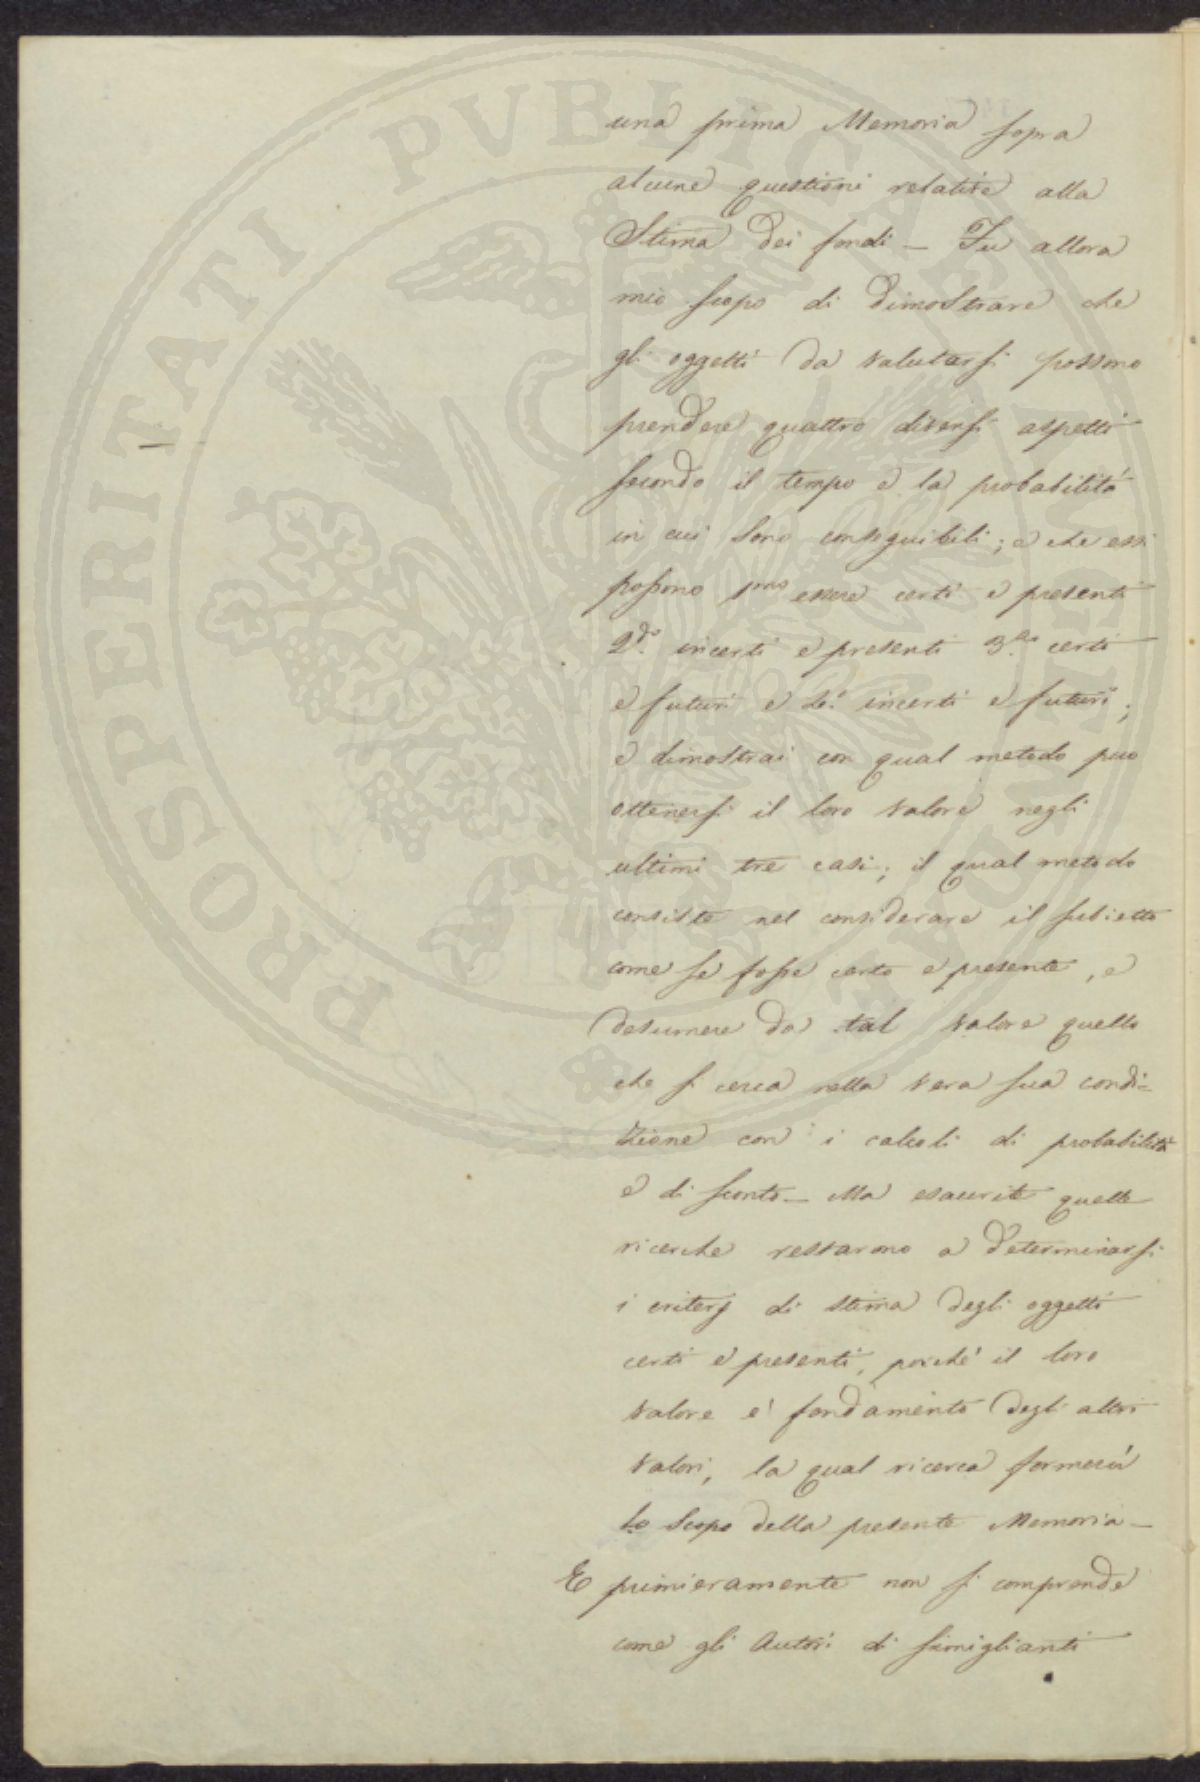 una prima Memoria sopra
alcune questioni relative alla
Stima dei fondi — Fu allora
mio scopo di dimostrare che
gli oggetti da valutarsi possono
prendere quattro diversi aspetti
secondo il tempo e la probabilità
in cui sono conseguibili; e che essi
possono 1mo essere certi e presenti
2do. incerti e presenti 3zo. certi
e futuri e 4o. incerti e futuri;
e dimostrai con qual metodo può
ottenersi il loro valore negli
ultimi tre casi; il qual metodo
consiste nel considerare il subietto
come se fosse certo e presente, e
desumere da tal valore quello
che si cerca nella vera sua condi=
zione con i calcoli di probabilità
e di sconto — Ma esaurite quelle
ricerche restarono a determinarsi
i criterj di stima degli oggetti
certi e presenti, poiché il loro
valore e' fondamento degli altri
valori, la qual ricerca formerà
lo scopo della presente Memoria —
E primieramente non si comprende
come gli Autori di simiglianti
PROSPERITATI PVBLICAE AVGENDAE